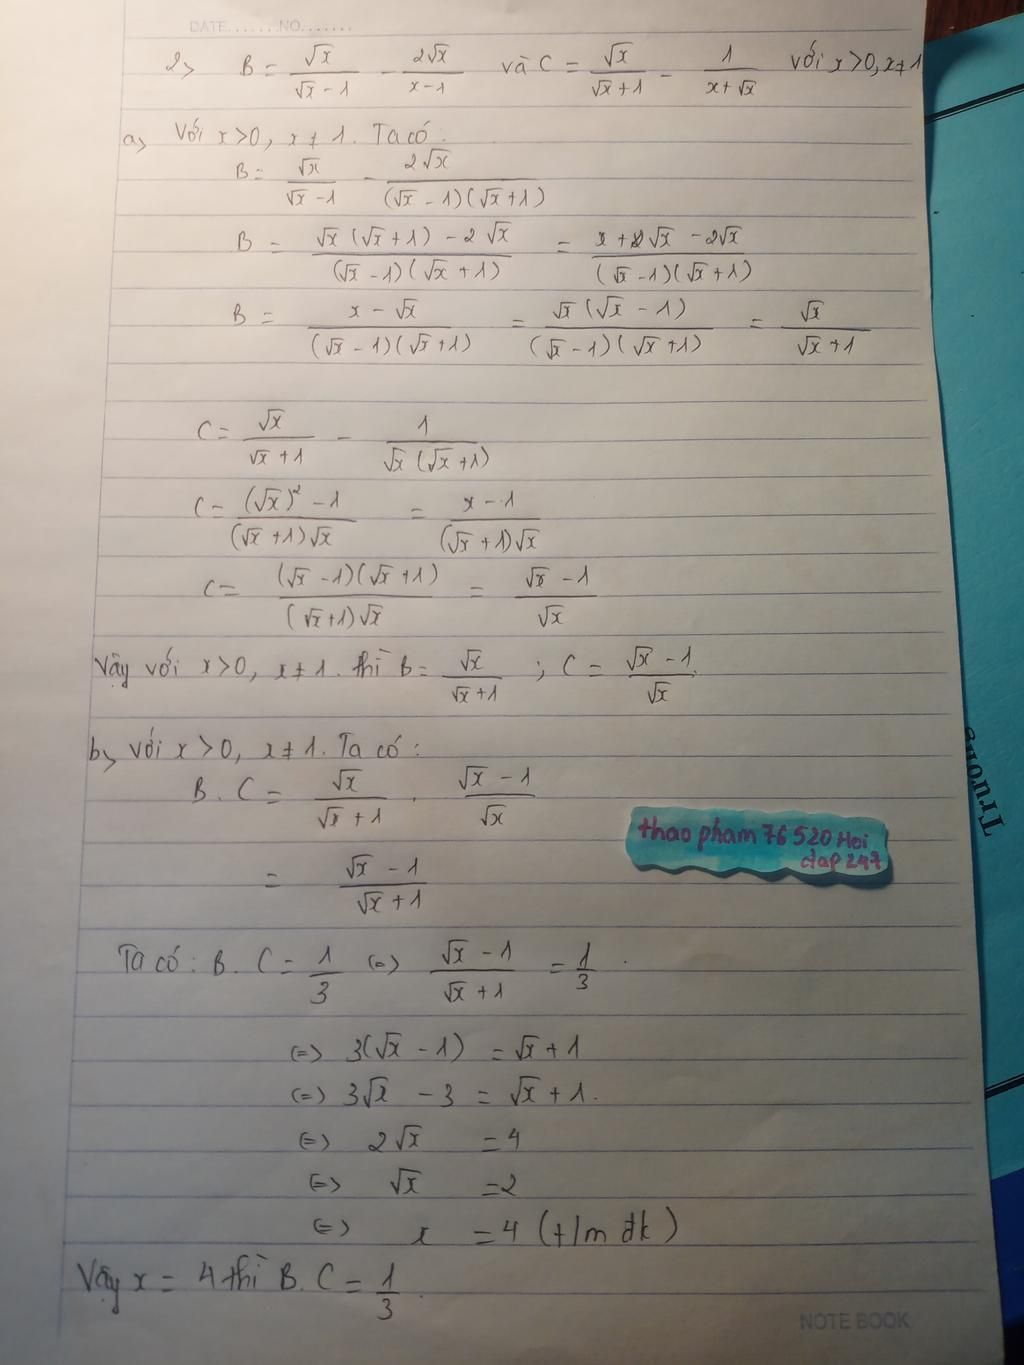 DATE.......NO.......
2> B = √x/(√x - 1) - 2√x/(x - 1) và C = √x/(√x + 1) - 1/(x + √x) với x>0, x≠1
a> Với x>0, x ≠ 1. Ta có:
B = √x/(√x - 1) - 2√x/((√x - 1)(√x + 1))
B = (√x (√x + 1) - 2√x)/((√x - 1)(√x + 1)) = (x + √x - 2√x)/((√x - 1)(√x + 1))
B = (x - √x)/((√x - 1)(√x + 1)) = (√x (√x - 1))/((√x - 1)(√x + 1)) = √x/(√x + 1)
C = √x/(√x + 1) - 1/(√x (√x + 1))
C = ((√x)² - 1)/((√x + 1)√x) = (x - 1)/((√x + 1)√x)
C = ((√x - 1)(√x + 1))/((√x + 1)√x) = (√x - 1)/√x
Vậy với x>0, x≠1. thì B = √x/(√x + 1) ; C = (√x - 1)/√x.
b> với x>0, x≠1. Ta có:
B. C = √x/(√x + 1) . (√x - 1)/√x
= (√x - 1)/(√x + 1)
thao pham 76 520 Hoi
dap 247
Ta có: B. C = 1/3 (=) (√x - 1)/(√x + 1) = 1/3.
(=) 3(√x - 1) = √x + 1
(=) 3√x - 3 = √x + 1.
(=) 2√x = 4
(=) √x = 2
(=) x = 4 (t/m đk)
Vậy x = 4 thì B. C = 1/3.
NOTE BOOK
Trương